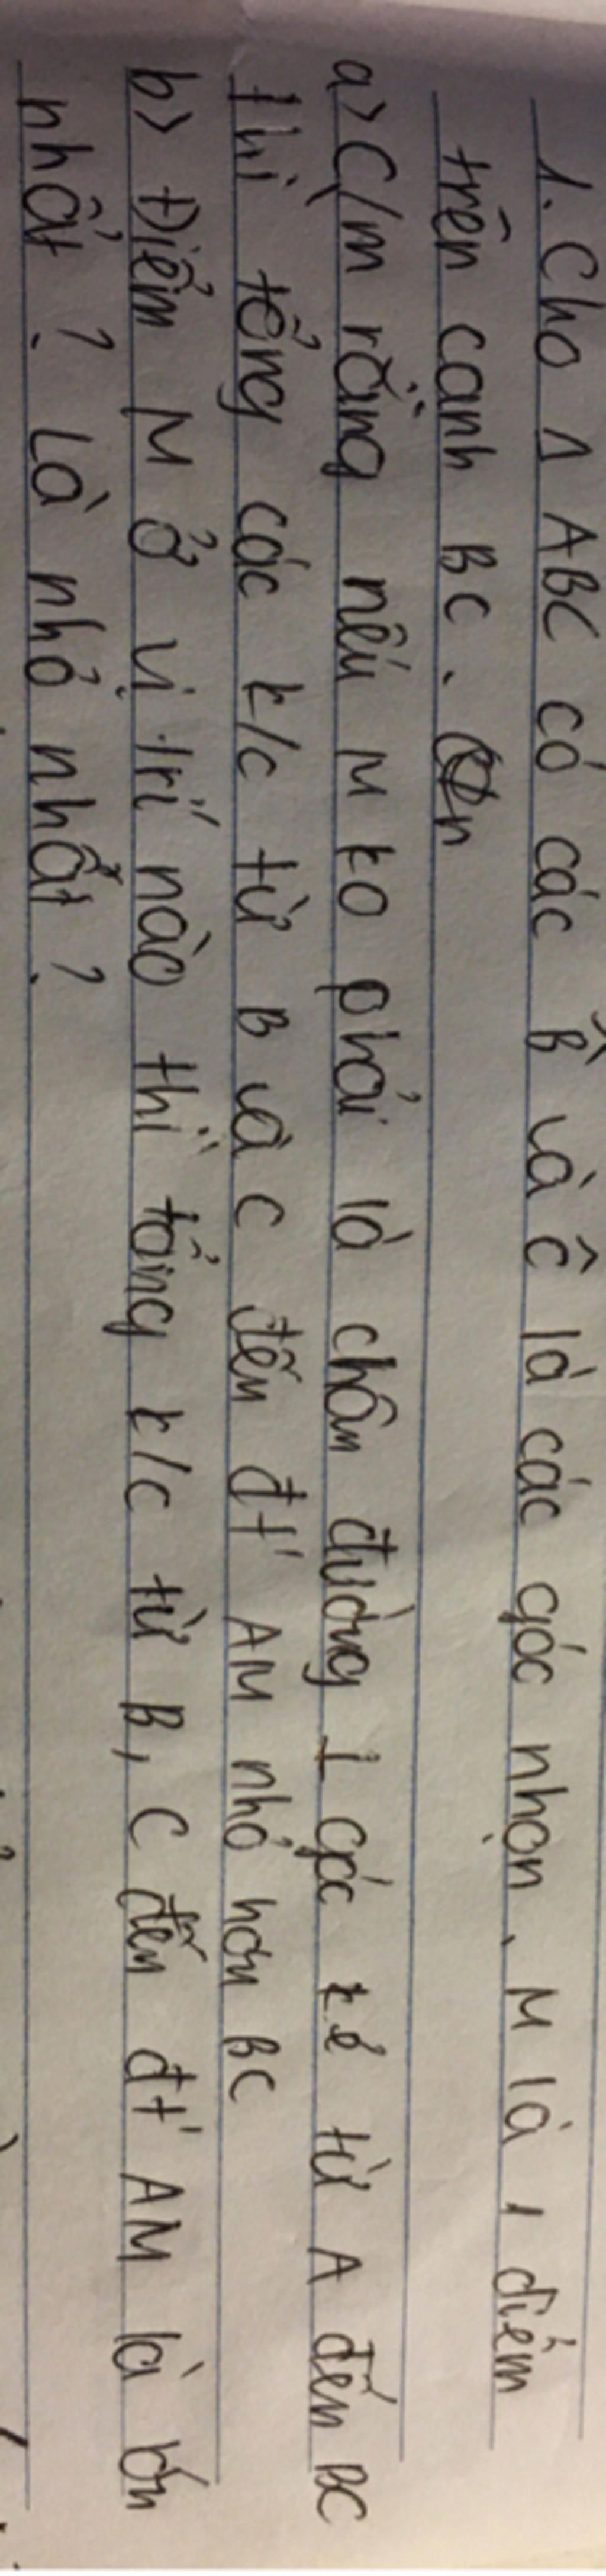 1. Cho Δ ABC có các B̂ và Ĉ là các góc nhọn. M là 1 điểm
trên cạnh BC.
a> C/m rằng nếu M ko phải là chân đường ⊥ góc kẻ từ A đến BC
thì tổng các k/c từ B và C đến đt' AM nhỏ hơn BC
b> Điểm M ở vị trí nào thì tổng k/c từ B, C đến đt' AM là lớn
nhất? Là nhỏ nhất?